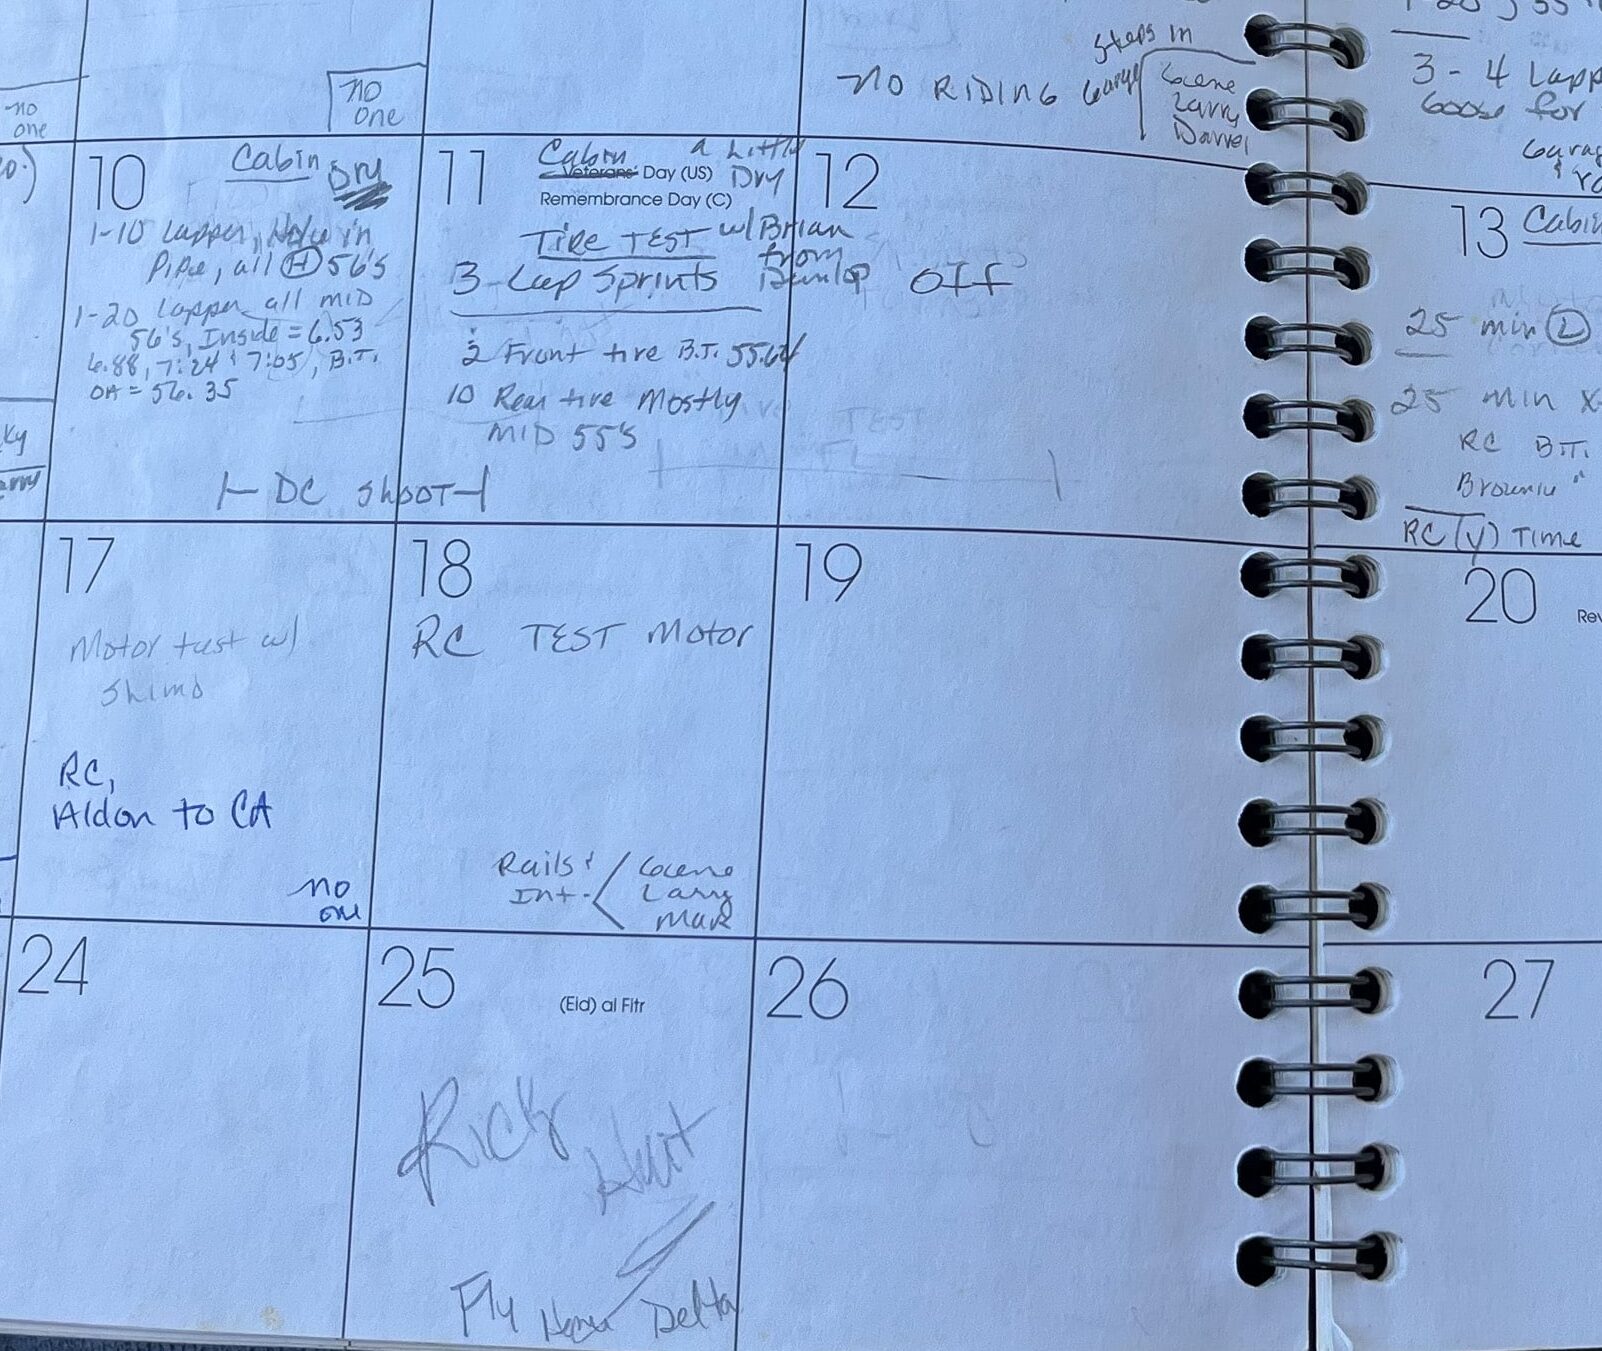 no
one
no
one
Steps in
no RIDING Garage
Gene
Larry
Darrel
3 - 4 Lapp
Goose for
Garag
10 Cabin Dry
1-10 Lapper, Hole in
Pipe, all H 56's
1-20 Lapper all MID
56's, Inside = 6.53
6.88, 7:24 & 7:05, B.T.
OA = 56.35
11 Cabin a Little
Veterans' Day (US) Dry
Remembrance Day (C)
Tire TEST w/ Brian
from
3-Lap Sprints Dunlop
2 Front tire B.T. 55.64
10 Rear tire Mostly
MID 55's
|- DC Shoot -|
12
Off
13 Cabin
25 min L
25 min X-
RC B.T.
Brownie "
RC (y) Time
17
Motor test w/
Shimo
RC,
Aldon to CA
no
one
18
RC TEST Motor
Rails &
Int. <
Gene
Larry
Mark
19
20 Rev
24
25 (Eid) al Fitr
Rick
Hart
Fly Home Delta
26
27